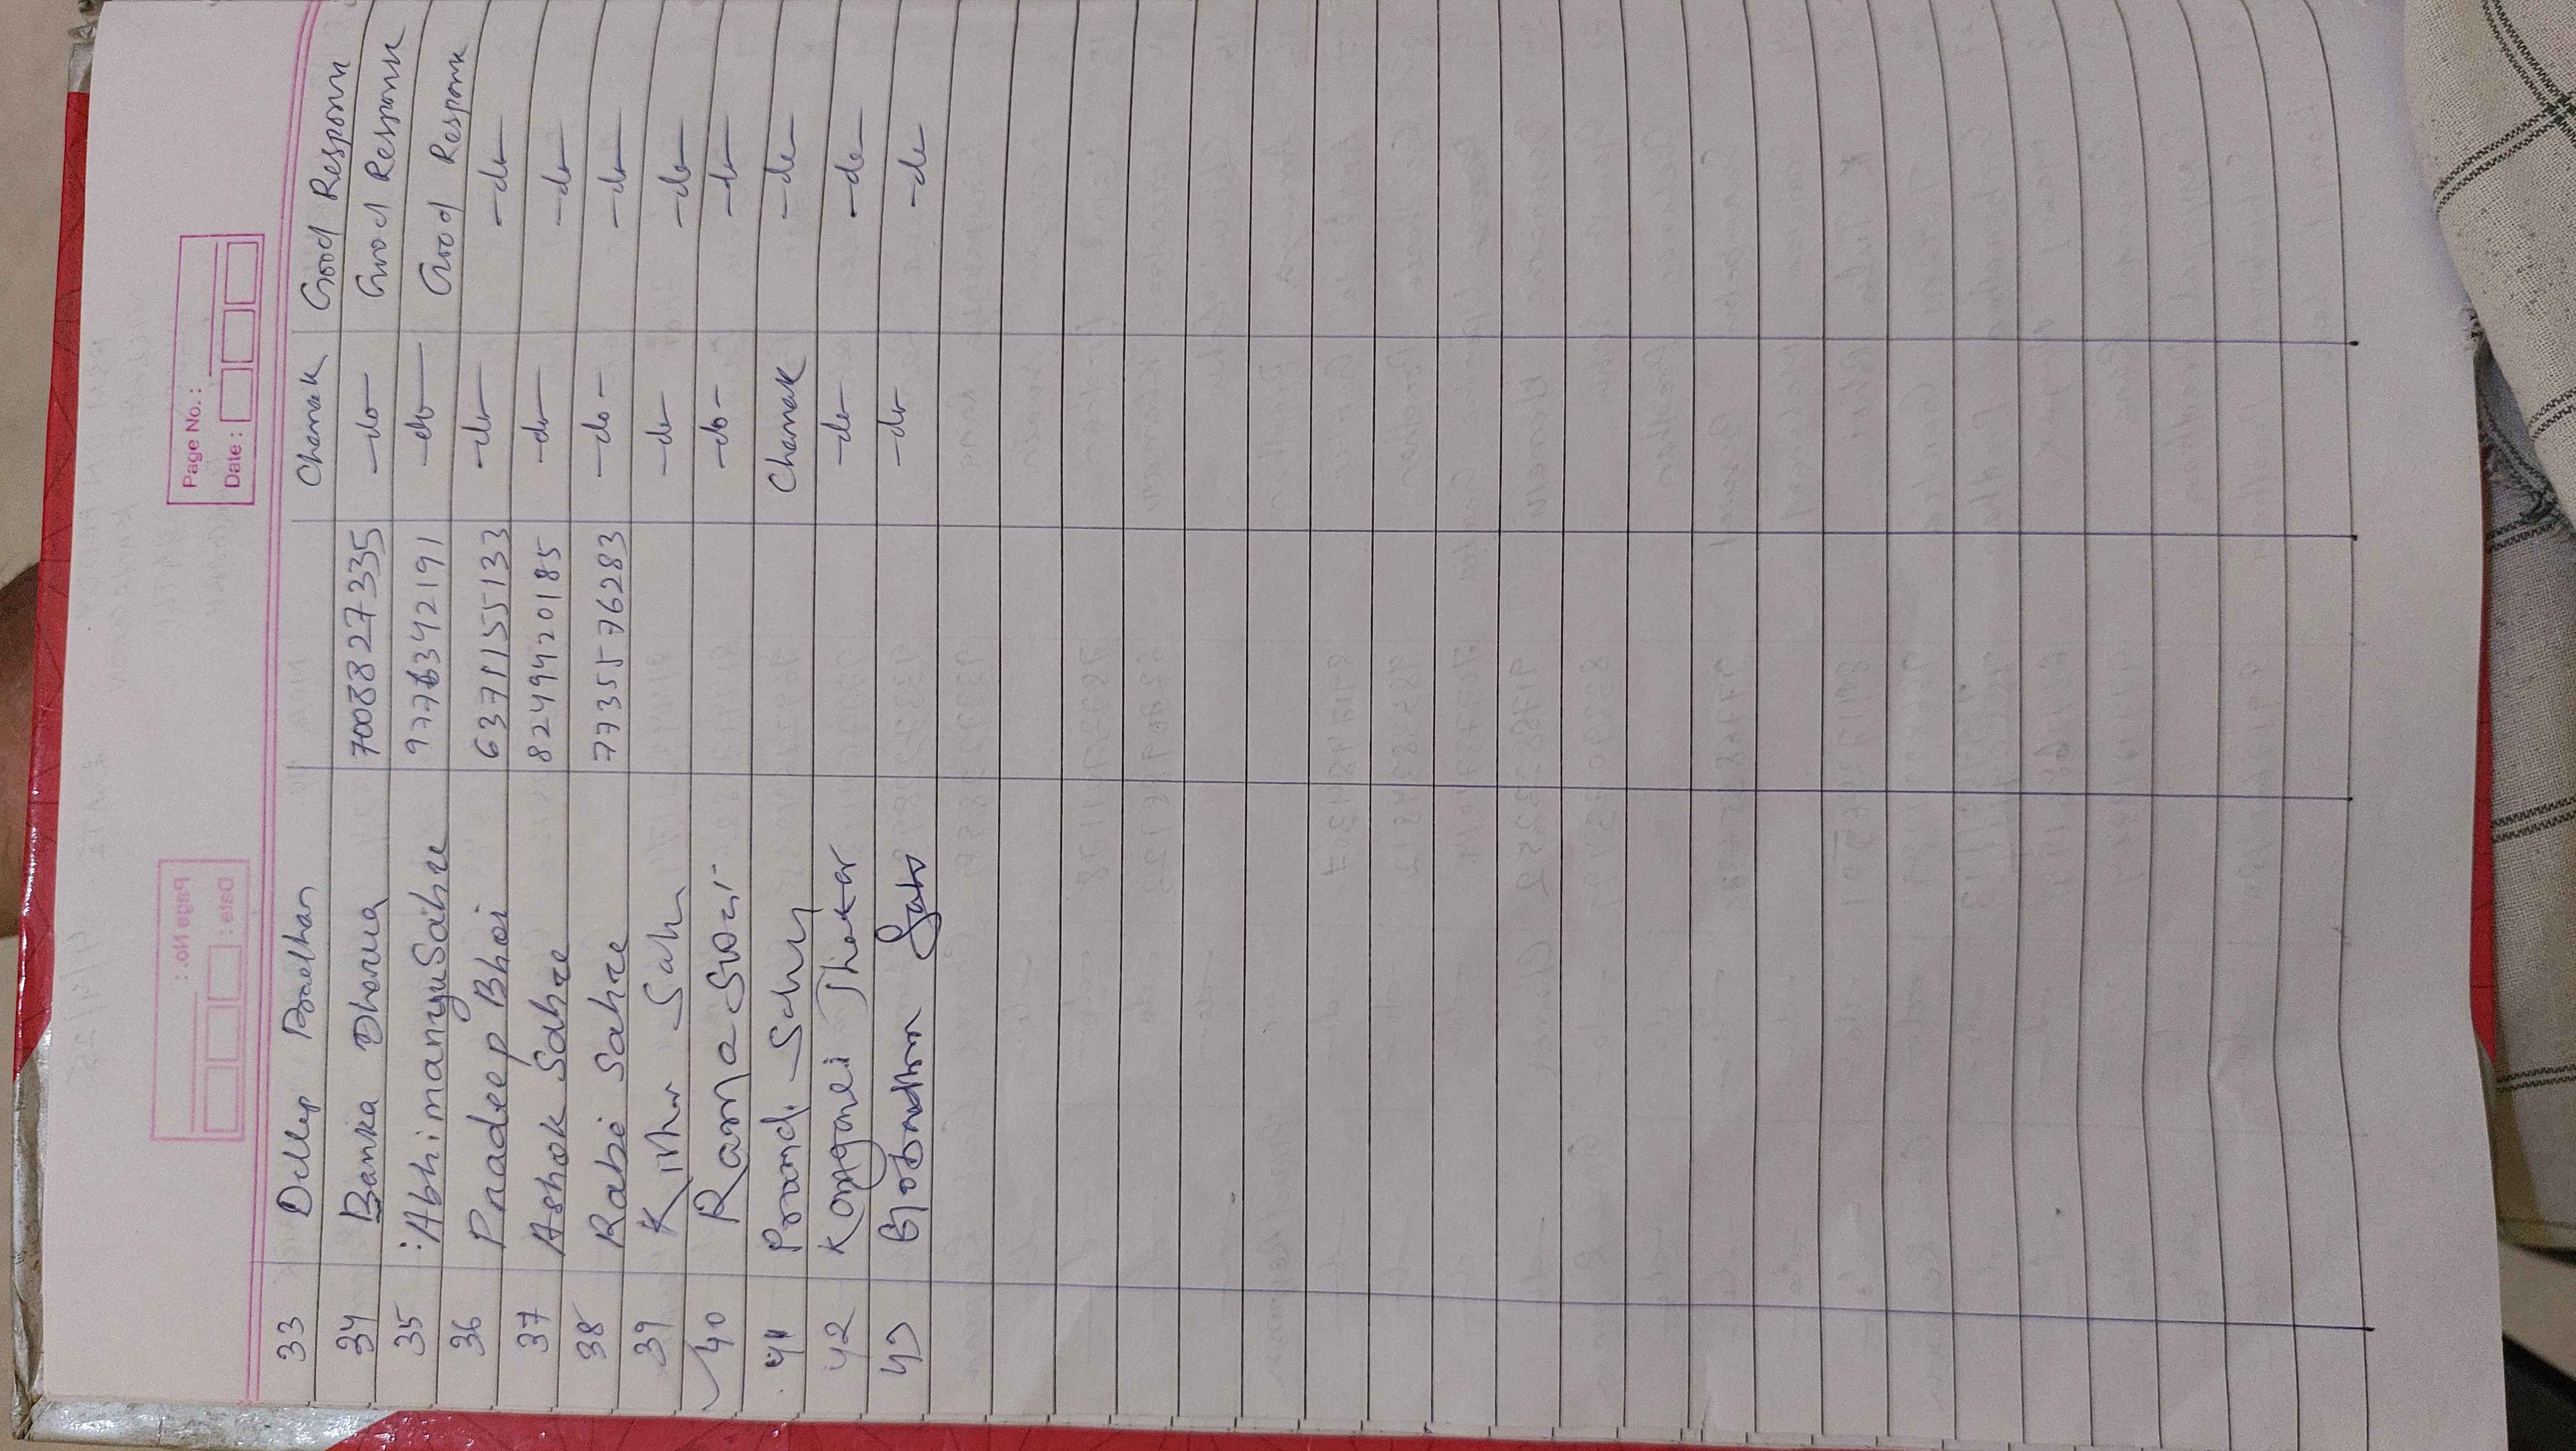 Page No. :
Date :
33 Dillip Pradhan Chamak Good Response
34 Banka Dharua 7008827335 -do- Good Response
35 Abhimanyu Sahu 9776342191 -do- Good Response
36 Pradeep Bhoi 6371155133 -do- -do-
37 Ashok Sahu 8249420185 -do- -do-
38 Rabi Sahu 7735576283 -do- -do-
39 Sahu -do- -do-
40 Rama -do- -do-
41 Sahu Chamak -do-
42 -do- -do-
43 -do- -do-